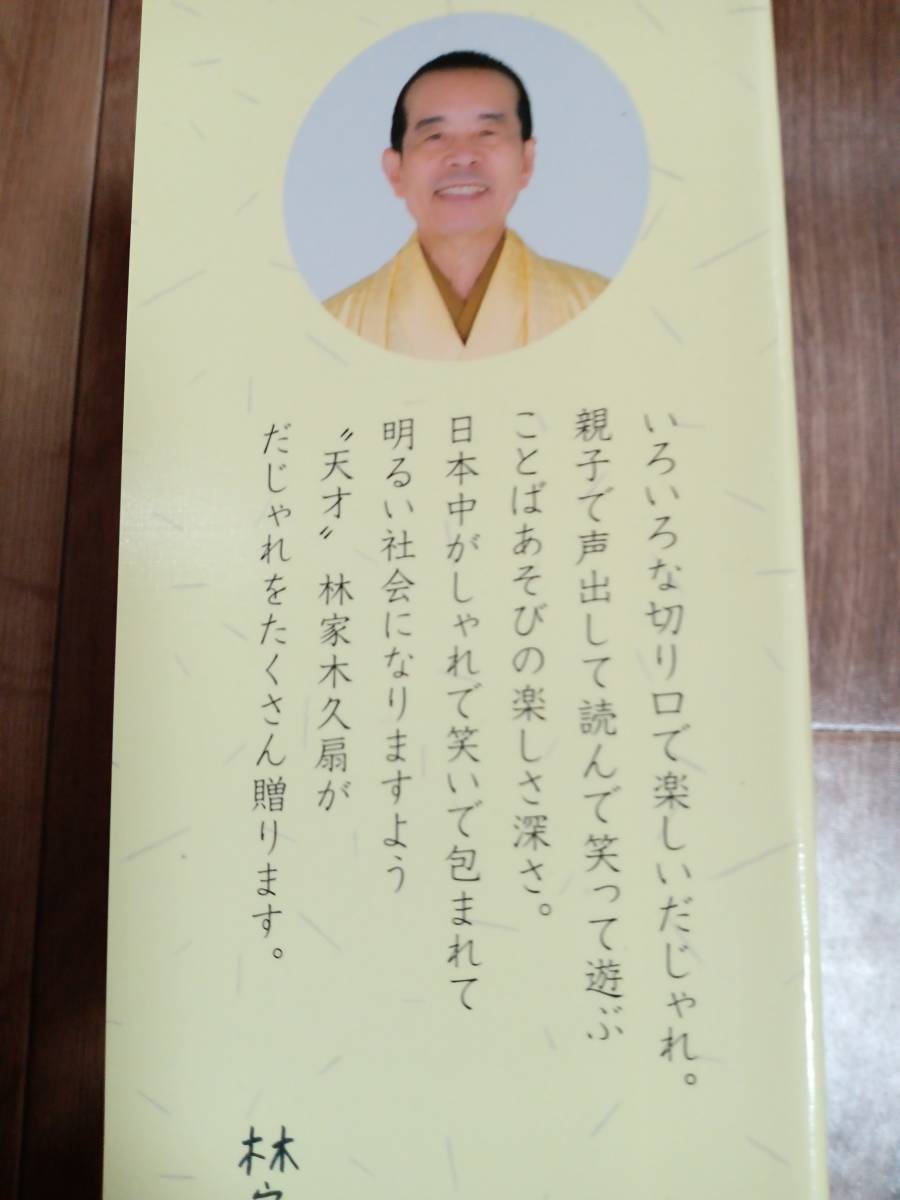 いろいろな切り口で楽しいだじゃれ。
親子で声出して読んで笑って遊ぶ
ことばあそびの楽しさ深さ。
日本中がしゃれで笑いで包まれて
明るい社会になりますよう
〝天才〟 林家木久扇が
だじゃれをたくさん贈ります。
林